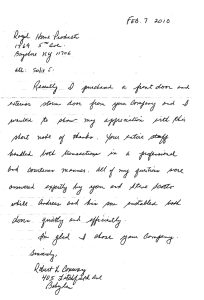 Feb. 7 2010
Royal Home Products
1769 5th Ave.
Bayshore NY 11706
Att: Julie S.
Recently I purchased a front door and
exterior storm door from your company and I
wanted to show my appreciation with this
short note of thanks. Your entire staff
handled both transactions in a professional
and courteous manner. All of my questions were
answered expertly by you and Steve Scotto
while Andreas and his son installed both
doors quickly and efficiently.
I'm glad I chose your company.
Sincerely,
Robert L. Conway
405
Ave
Babylon